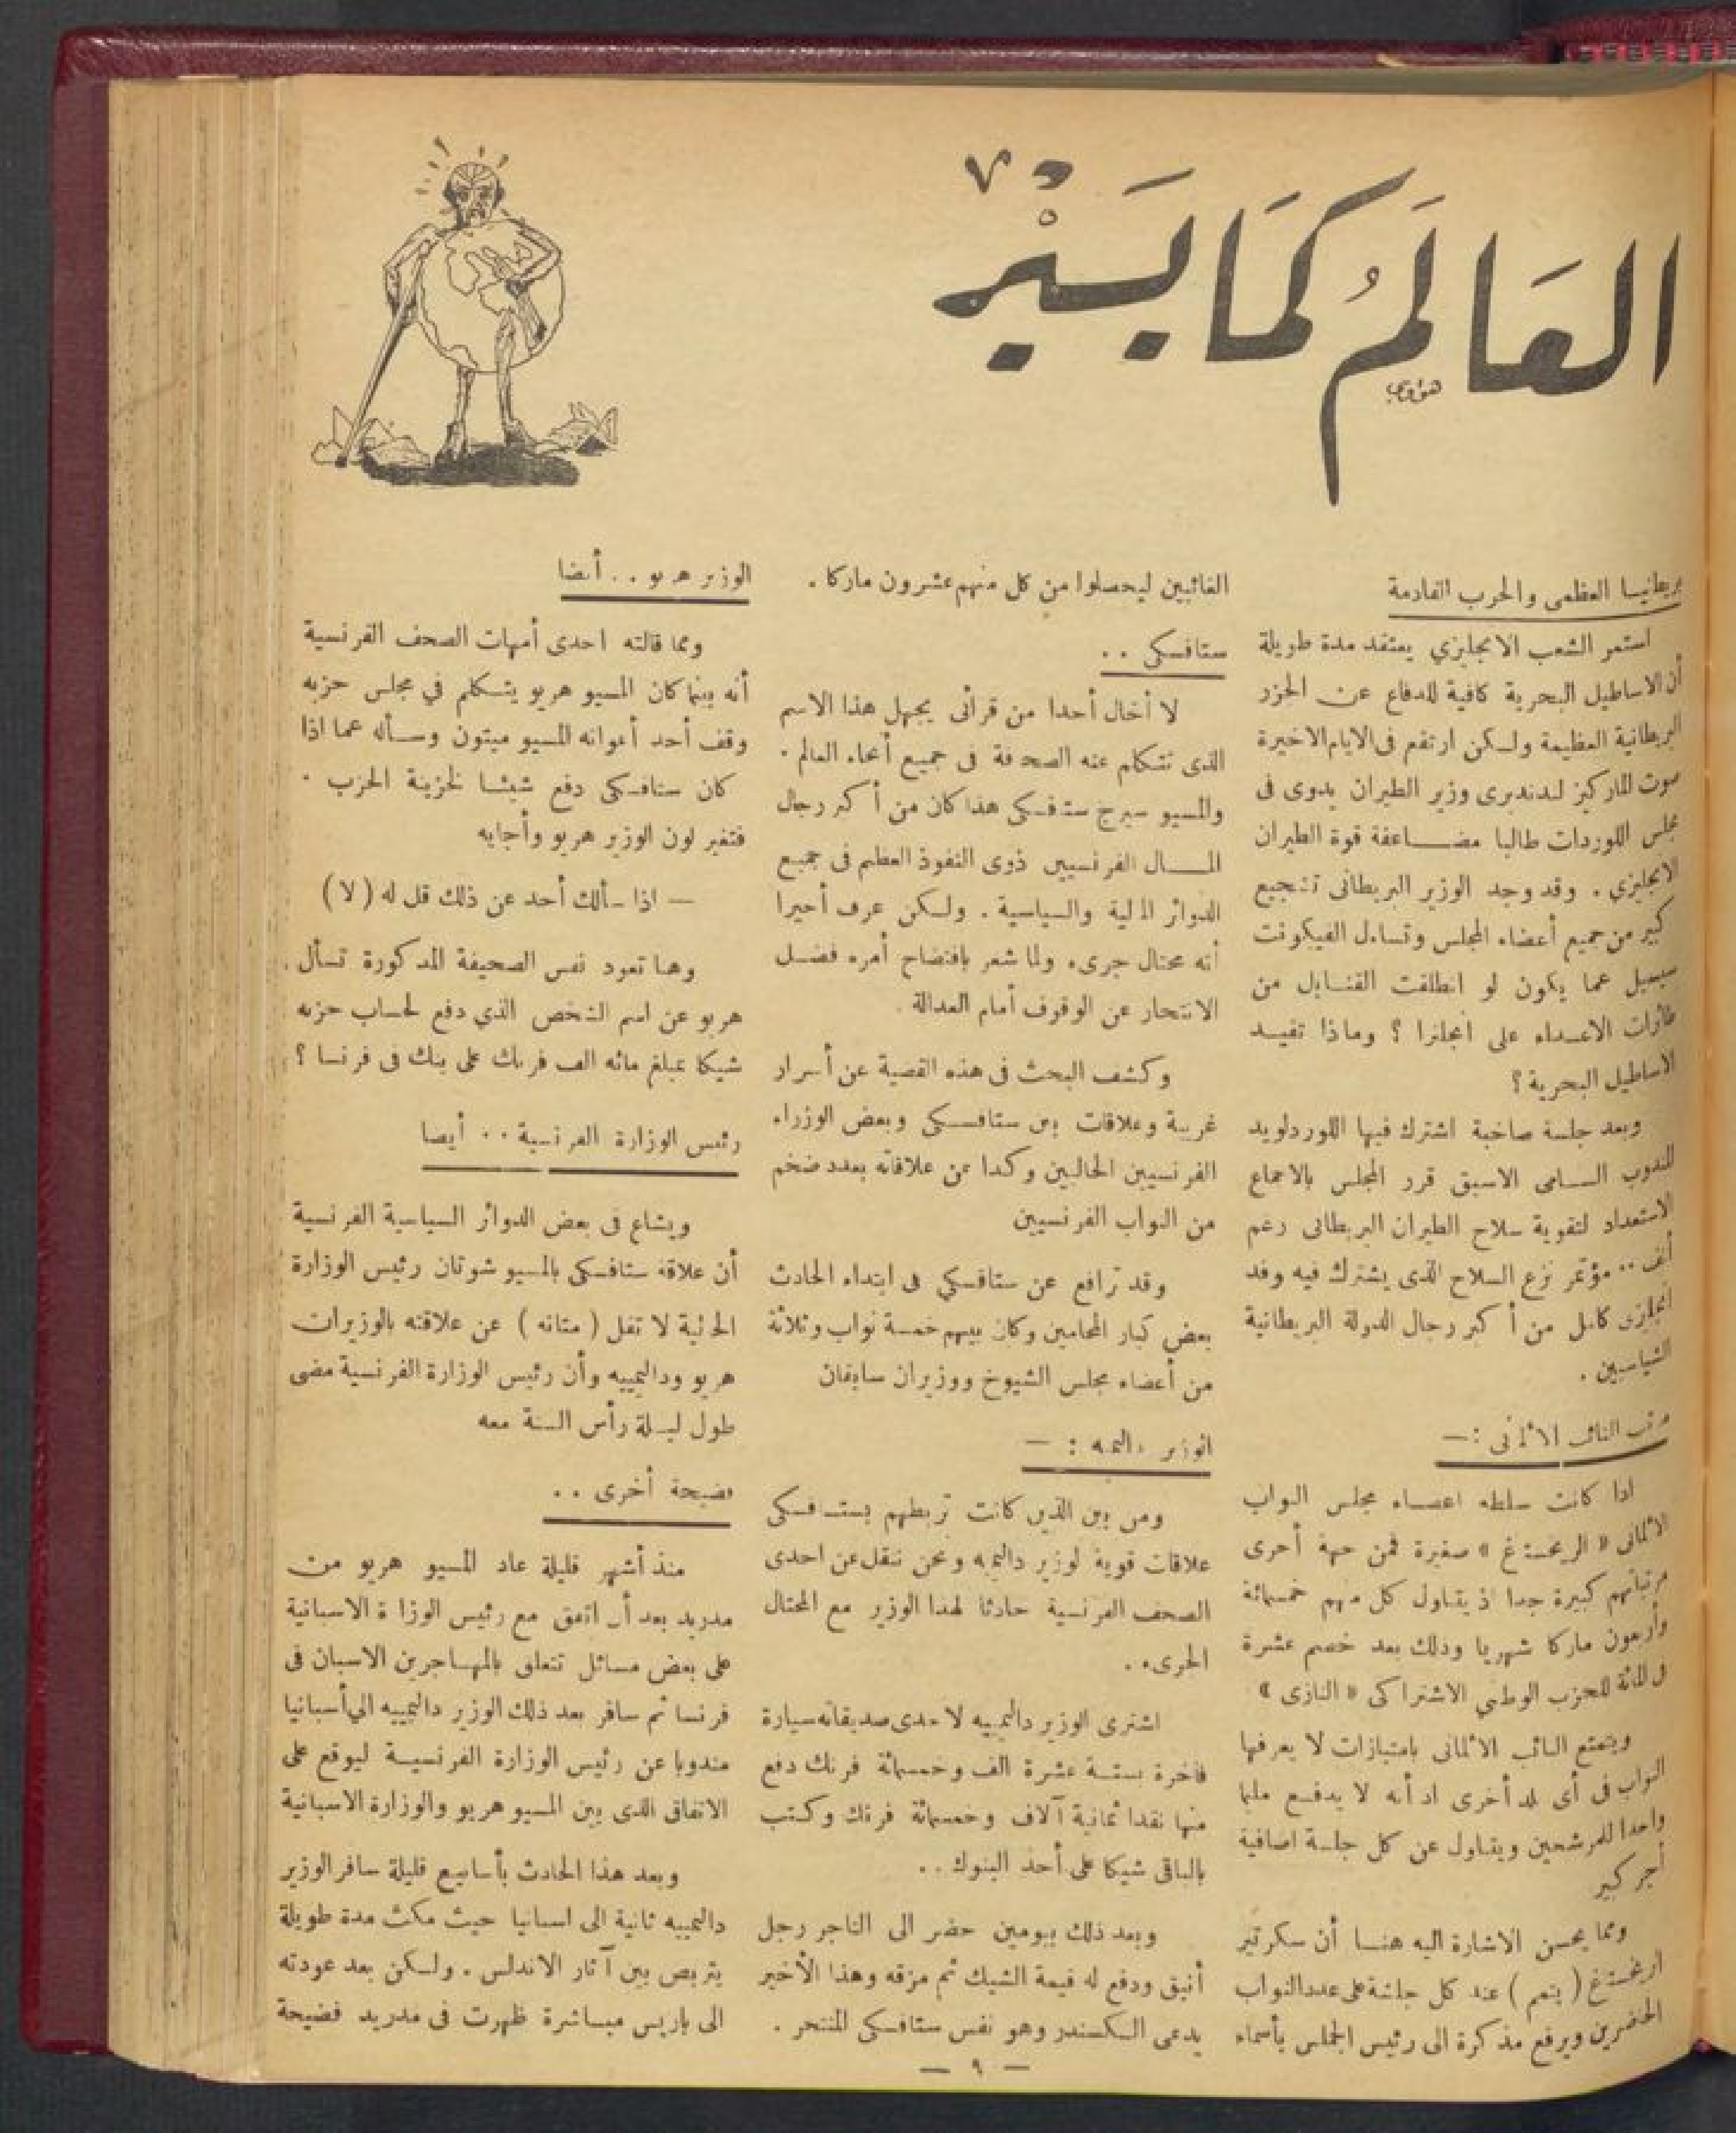 العَالَمُ كَمَا يَسَيْر
هواويني
بريطانيا العظمى والحرب القادمة
استمر الشعب الانجليزي يعتقد مدة طويلة
أن الاساطيل البحرية كافية للدفاع عن الجزر
البريطانية العظيمة ولكن ارتفع فى الايام الاخيرة
صوت الماركيز لندندبرى وزير الطيران يدوى فى
مجلس اللوردات طالبا مضاعفة قوة الطيران
الانجليزي . وقد وجد الوزير البريطانى تشجيع
كبير من جميع أعضاء المجلس وتساءل الفيكونت
سيسيل عما يكون لو انطلقت القنابل من
طائرات الاعداء على انجلترا ؟ وماذا تفيد
الاساطيل البحرية ؟
وبعد جلسة صاخبة اشترك فيها اللورد لويد
المندوب السامى الاسبق قرر المجلس بالاجماع
الاستعداد لتقوية سلاح الطيران البريطانى رغم
أنف .. مؤتمر نزع السلاح الذى يشترك فيه وفد
انجليزى كامل من أكبر رجال الدولة البريطانية
السياسيين .
مرتب النائب الالمانى : —
اذا كانت سلطة اعضاء مجلس النواب
الالمانى « الريخستاغ » صغيرة فمن جهة أخرى
مرتباتهم كبيرة جدا اذ يتناول كل منهم خمسمائة
وأربعون ماركا شهريا وذلك بعد خصم عشرة
فى المائة للحزب الوطنى الاشتراكى « النازى »
ويتمتع النائب الالمانى بامتيازات لا يعرفها
النواب فى أى بلد أخرى اذ أنه لا يدفع مليما
واحدا للمرشحين ويتناول عن كل جلسة اضافية
أجر كبير
ومما يحسن الاشارة اليه هنا أن سكرتير
الريخستاغ ( يتمم ) عند كل جلسة على عدد النواب
الحاضرين ويرفع مذكرة الى رئيس المجلس بأسماء
الغائبين ليحصلوا من كل منهم عشرون ماركا .
ستافسكى ..
لا أخال أحدا من قرائى يجهل هذا الاسم
الذى تتكلم عنه الصحافة فى جميع أنحاء العالم .
والمسيو سيرج ستافسكى هذا كان من أكبر رجال
المال الفرنسيين ذوى النفوذ العظيم فى جميع
الدوائر المالية والسياسية . ولكن عرف أخيرا
أنه محتال جرىء ولما شعر بافتضاح أمره فضل
الانتحار عن الوقوف أمام العدالة .
وكشف البحث فى هذه القضية عن أسرار
غريبة وعلاقات بين ستافسكى وبعض الوزراء
الفرنسيين الحاليين وكذا عن علاقاته بعدد ضخم
من النواب الفرنسيين
وقد ترافع عن ستافسكي فى ابتداء الحادث
بعض كبار المحامين وكان بينهم خمسة نواب وثلاثة
من أعضاء مجلس الشيوخ ووزيران سابقان
الوزير داليميه : —
ومن بين الذين كانت تربطهم بستافسكى
علاقات قوية لوزير داليميه ونحن ننقل عن احدى
الصحف الفرنسية حادثا لهذا الوزير مع المحتال
الجرىء .
اشترى الوزير داليمييه لاحدى صديقاته سيارة
فاخرة بستة عشرة الف وخمسمائة فرنك دفع
منها نقدا ثمانية آلاف وخمسمائة فرنك وكتب
بالباقى شيكا على أحد البنوك ..
وبعد ذلك بيومين حضر الى التاجر رجل
أنيق ودفع له قيمة الشيك ثم مزقه وهذا الأخير
يدعى السكسندر وهو نفس ستافسكى المنتحر .
الوزير هريو .. أيضا
ومما قالته احدى أمهات الصحف الفرنسية
أنه بينما كان المسيو هريو يتكلم في مجلس حزبه
وقف أحد أعوانه المسيو ميتون وسأله عما اذا
كان ستافسكى دفع شيئا لخزينة الحزب .
فتغير لون الوزير هريو وأجابه
— اذا سألك أحد عن ذلك قل له ( لا )
وها تعود نفس الصحيفة المذكورة تسأل .
هريو عن اسم الشخص الذي دفع لحساب حزبه
شيكا بمبلغ مائه الف فرنك على بنك فى فرنسا ؟
رئيس الوزارة الفرنسية .. أيضا
ويشاع فى بعض الدوائر السياسية الفرنسية
أن علاقة ستافسكى بالمسيو شوتان رئيس الوزارة
الحالية لا تقل ( متانه ) عن علاقته بالوزيران
هريو وداليمييه وأن رئيس الوزارة الفرنسية مضى
طول ليلة رأس السنة معه
فضيحة أخرى ..
منذ أشهر قليلة عاد المسيو هريو من
مدريد بعد أن اتفق مع رئيس الوزارة الاسبانية
على بعض مسائل تتعلق بالمهاجرين الاسبان فى
فرنسا ثم سافر بعد ذلك الوزير داليمييه الي أسبانيا
مندوبا عن رئيس الوزارة الفرنسية ليوقع على
الاتفاق الذى بين المسيو هريو والوزارة الاسبانية
وبعد هذا الحادث بأسابيع قليلة سافر الوزير
داليمييه ثانية الى اسبانيا حيث مكث مدة طويلة
يتربص بين آثار الاندلس . ولكن بعد عودته
الى باريس مباشرة ظهرت فى مدريد فضيحة
— ٩ —